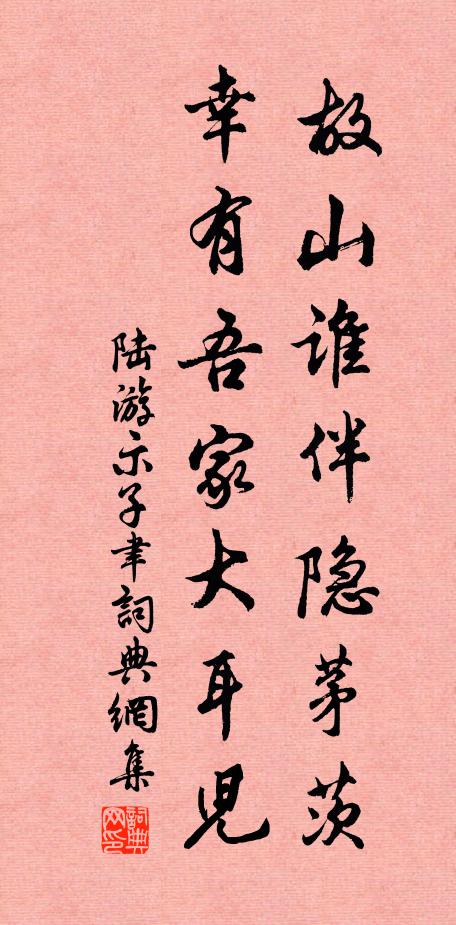 故山谁伴隐茅茨
幸有吾家大耳児
陆游示子聿詞典網集
詞典
网印